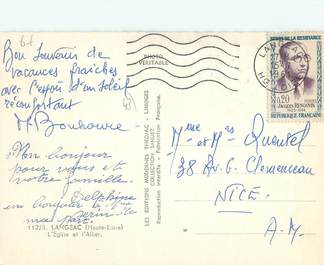 61
Bon Souvenir de
vacances fraîches
avec l'espoir d'un soleil
réconfortant
M Bonhoure
Un bonjour
pour vous et
votre famille
Delphine
un bonjour
ma part
112/5. LANGEAC (Haute-Loire)
L'Eglise et l'Allier.
PHOTO
VERITABLE
LES EDITIONS MODERNES THEOJAC - LIMOGES
Reproduction interdite - Fabrication Française
LANGEAC
HEROS DE LA RESISTANCE
0,20
Jacques RENOUVIN
1905-1944
POSTES
REPUBLIQUE FRANCAISE
Mme et Mr Quentel
38 Av. G. Clemenceau
NICE
A.M.